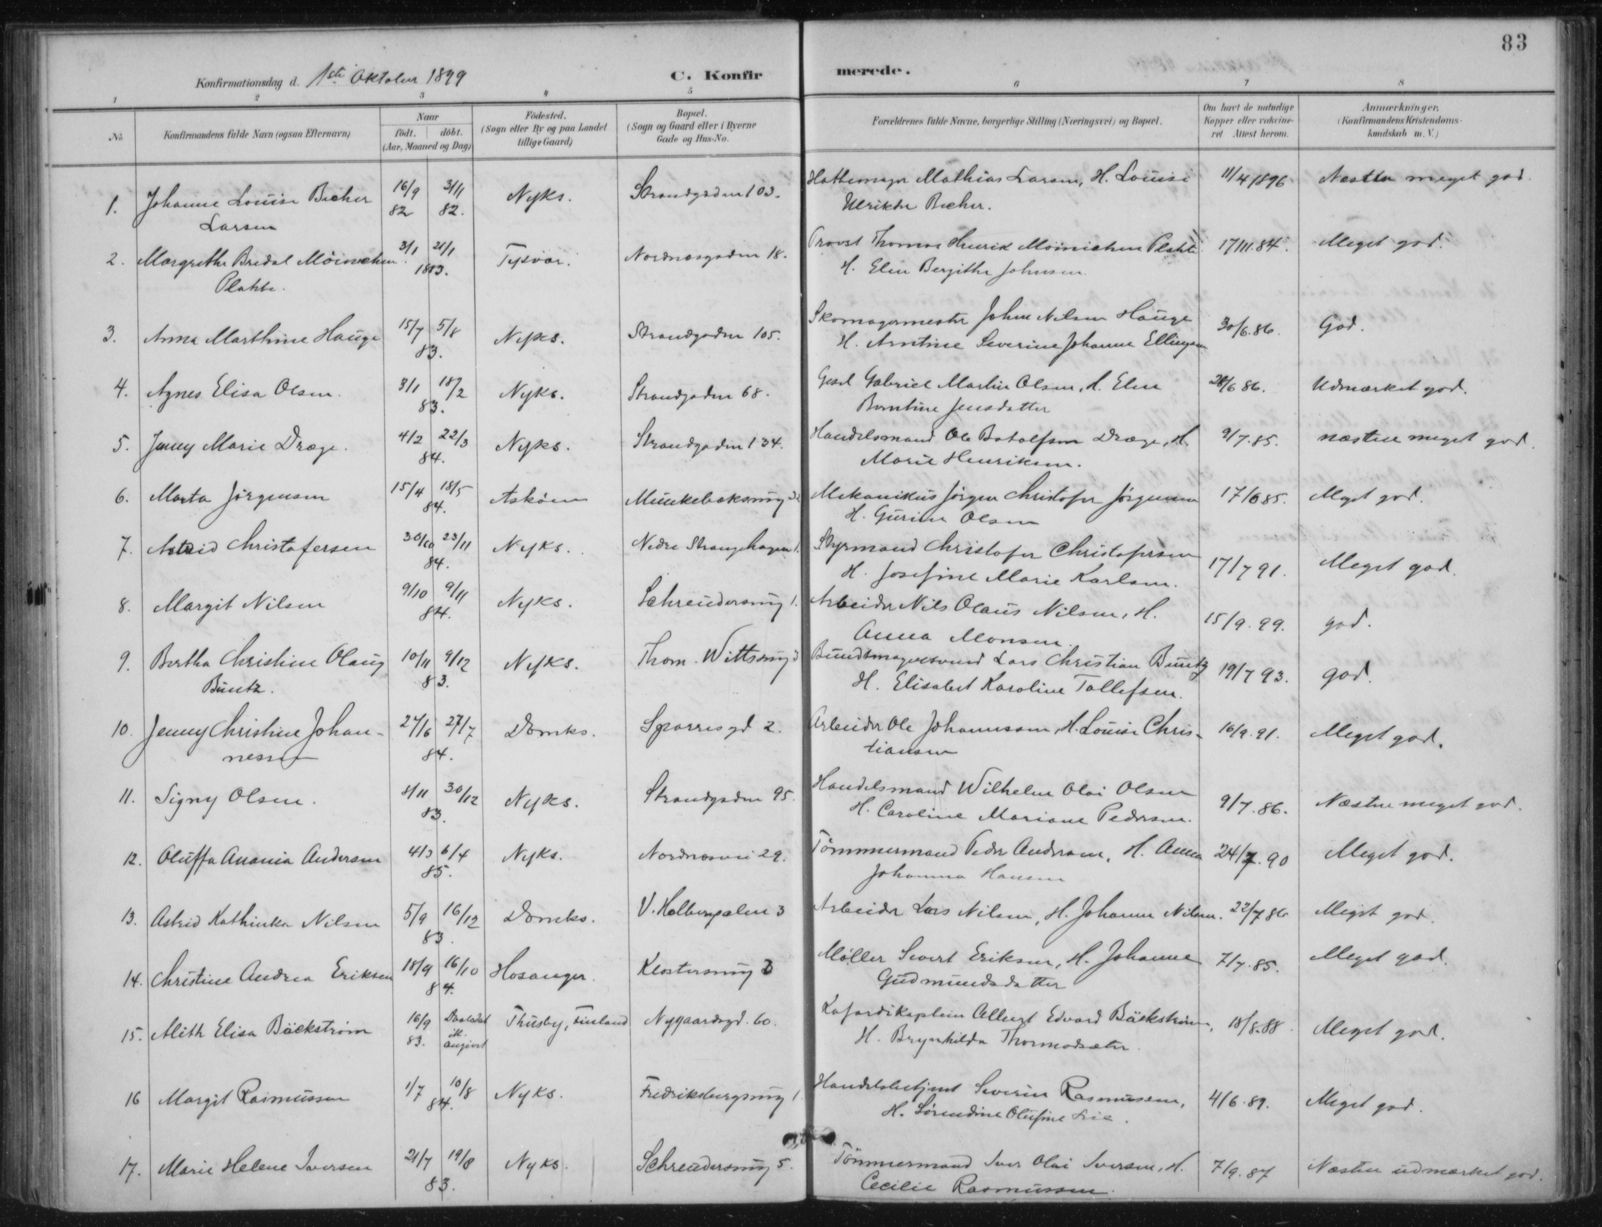 83
Konfirmationsdag d. 1ste Oktober 1899
C. Konfirmerede.
1 2 3 4 5 6 7 8
No. Konfirmandens fulde Navn (ogsaa Efternavn) Naar født. døbt. (Aar, Maaned og Dag) Fødested. (Sogn eller By og paa Landet tillige Gaard) Bopæl. (Sogn og Gaard eller i Byerne Gade og Hus-No. Forældrenes fulde Navne, borgerlige Stilling (Næringsvei) og Bopæl. Om havt de naturlige Kopper eller vakcineret Attest herom. Anmærkninger. (Konfirmandens Kristendomskundskab m. V.)
1. Johanne Louise Bucher 16/9 82 3/11 82. Nyks. Strandgaden 103. Hattemager Mathias Larsen, H. Louise 11/4 1896 Næsten meget god.
Larsen Ulrikke Bucher.
2. Margrethe Bredal Møinichen 3/1 21/1 1883. Tysvær. Nordnæsgaden 18. Provst Thomas Henrik Møinichen Plahte 17/11.84. Meget god.
Plahte. H. Elen Bergithe Johnsen
3. Anna Marthine Hauge 15/7 5/8 83. Nyks. Strandgaden 105. Skomagermester Johan Nilsen Hauge 30/6.86. God.
H. Arntine Severine Johanne Ellingsen
4. Agnes Elisa Olsen. 3/1 18/2 83. Nyks. Strandgaden 68. Gabriel Martin Olsen, H. Elen 6 86. Udmærket god.
Berntine Jensdatter
5. Jenny Marie Dræge. 4/2 22/3 84. Nyks. Strandgaden 134. Handelsmand Ole Botolfsen Dræge, H. 9/7.85. næsten meget god.
Marie Henriksen.
6. Marta Jørgensen 15/4 18/5 84. Askøen Munkebeksmug Mekanikus Jørgen Christofer Jørgensen 17/6 85. Meget god.
H. Gurine Olsen
7. Astrid Christofersen 30/10 23/11 84. Nyks. Nedre Strangehagen 1. Styrmand Christofer Christofersen 17/7 91. Meget god.
H. Josefine Marie Karlsen.
8. Margit Nilsen 9/10 9/11 84. Nyks. Schreudersmug 1. Arbeider Nils Olaus Nilsen, H. 15/9.99. god.
Anna Monsen.
9. Bertha Christine Olaug 10/11 9/12 83. Nyks. Thom. Wittsmug 3 Bundtmagersvend Lars Christian Buntz 19/7 93. god.
Buntz. H. Elisabet Karoline Tollefsen.
10. Jenny Christine Johan- 24/6 27/7 84. Domks. Sparresgd 2. Arbeider Ole Johannessen, H. Louise Chris- 16/9.91. Meget god.
nessen tiansen
11. Signy Olsen. 4/11 30/12 83. Nyks. Strandgaden 95. Handelsmand Wilhelm Olai Olsen 9/7.86. Næsten meget god.
H. Caroline Mariane Pedersen.
12. Oluffa Anania Andersen 4/3 6/4 85. Nyks. Nordnæsvei 29. Tømmermand Peder Andersen, H. Anna 24/7.90 Meget god.
Johanna Hansen
13. Astrid Kathinka Nilsen 5/9 16/12 83. Domks. V. Holbergsalm 3 Arbeider Lars Nilsen, H. Johanne Nilsen. 22/7 86 Meget god.
14. Christine Andrea Eriksen 18/9 16/10 84. Hosanger. Klostersmug 3 Møller Sivert Eriksen, H. Johanne 7/7.85. Meget god.
Gudmundsdatter
15. Alith Elisa Bäckström 16/9 83. Daabsdat. ik. angivet Thusby, Finland Nygaardsgd. 60. Kofardikaptein Albert Edvard Bäckström, 18/8.88 Meget god.
H. Brynhilda Thormodsæter
16 Margit Rasmussen 1/7 10/8 84. Nyks. Fredriksbergsmug 1 Handelsbetjent Severin Rasmussen, 4/6.89. Meget god.
H. Serendine Olufine Lie.
17. Marie Helene Iversen 21/7 19/8 83. Nyks. Schreudersmug 5. Tømmermand Iver Olai Iversen, H. 7/9.87 Næsten udmærket god.
Cecilie Rasmussen.